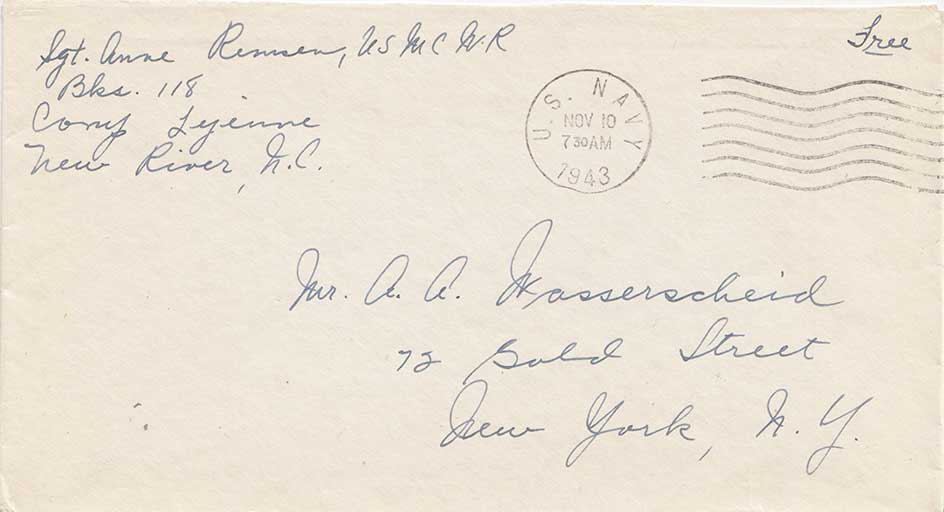 Sgt. Anne Remsen, USMCWR
Free
Bks. 118
Camp Lejeune
New River, N.C.
U.S. NAVY
NOV 10
730AM
1943
Mr. A. A. Wasserscheid
72 Gold Street
New York, N.Y.